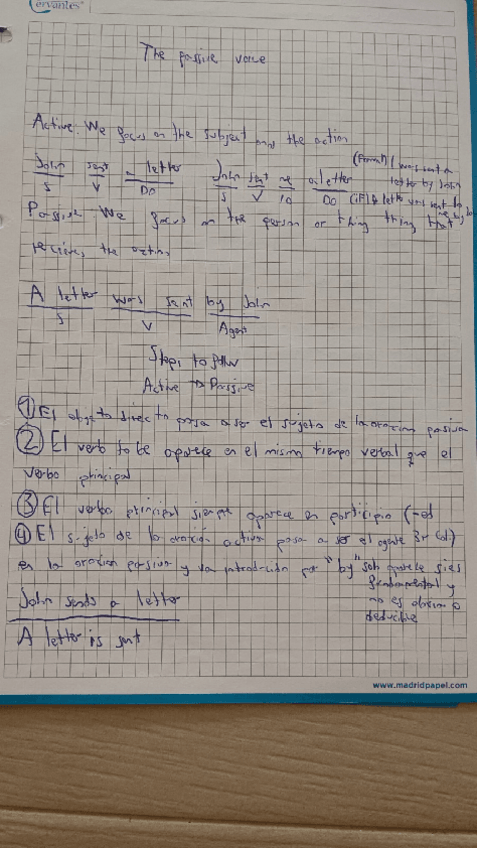 Cervantes
The passive voice
Active: We focus on the subject and the action
John sent a letter
S V DO
John sent me a letter
S V IO DO
(Formal) I was sent a
letter by John
(IF) A letter was sent to
me by
Passive: We focus on the person or thing thing that
recieves the action
A letter was sent by John
S V Agent
Steps to follow
Active → Passive
① El objeto directo pasa a ser el sujeto de la oracion pasiva
② El verb to be aparece en el mismo tiempo verbal que el
verbo principal
③ El verbo principal siempre aparece en participio (-ed
3r col)
④ El sujeto de la oración activa pasa a ser el agente
en la oracion pasiva y va introducido por "by" solo aparece si es
fundamental y
no es obvio o
deducible
John sends a letter
A letter is sent
www.madridpapel.com